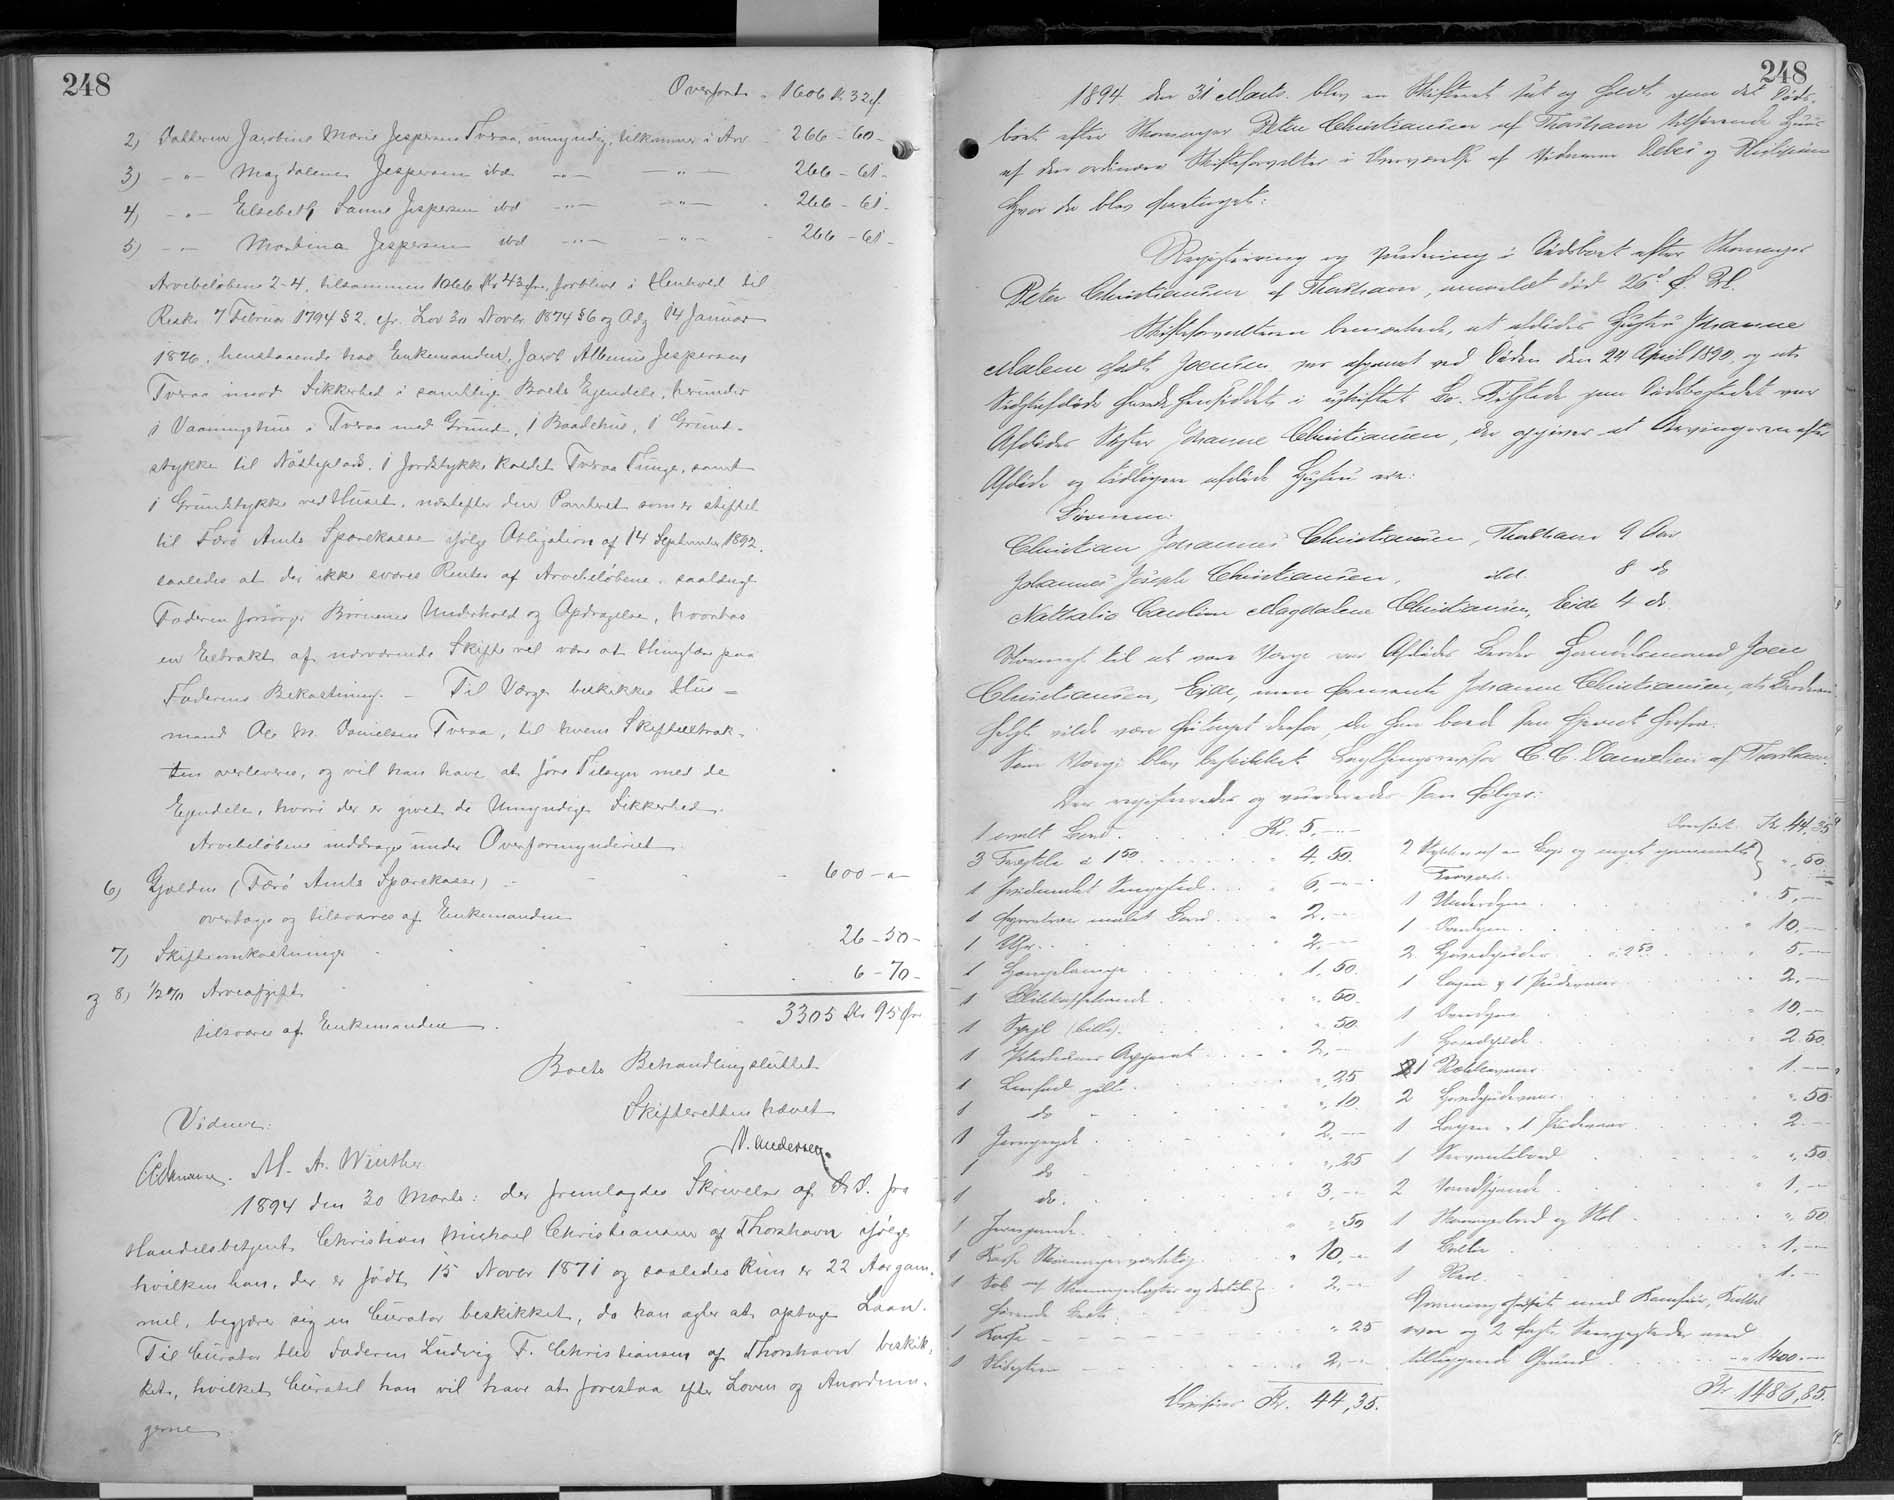 248
Overført - 1606 Kr 32 ø.
2) Datteren Jacobine Marie Jespersen Tveraa, umyndig, tilkommer i Arv - 266 - 60 -
3) -"- Magdalene Jespersen ibd -"- -"- 266 - 61 -
4) -"- Elsebeth Sanne Jespersen ibd -"- -"- 266 - 61 -
5) -"- Martina Jespersen ibd -"- -"- 266 - 61 -
Arvebeløbene 2-4, tilsammen 1066 Kr 43 Øre, forblive i Henhold til
Reskr 7 Februar 1794 § 2, cfr. Lov 30 Novbr 1874 § 6 og Adg 14 Januar
1876, henstaaende hos Enkemanden, Jacob Albinus Jespersen
Tveraa imod Sikkerhed i samtlige Boets Ejendele, herunder
1 Vaaningshus i Tveraa med Grund, 1 Baadehus, 1 Grund-
stykke til Nösteplads, 1 Jordstykke kaldet Tveraa Tunge, samt
1 Grundstykke ved Huset, næstefter den Panteret som er stiftet
til Færø Amts Sparekasse ifølge Obligation af 14 September 1892,
saaledes at der ikke svares Renter af Arvebeløbene, saalænge
Faderen forsørger Børnenes Underhold og Opdragelse, hvorhos
en Extrakt af nærværende Skifte vil være at thinglæse paa
Faderens Bekostning. - Til Værge beskikkes Hus-
mand Ole M. Danielsen Tveraa, til hvem Skifteextrak-
ten overleveres, og vil han have at føre Tilsyn med de
Ejendele, hvori der er givet de Umyndige Sikkerhed.
Arvebeløbene inddrages under Overformynderiet.
6) Gjælden (Færø Amts Sparekasse) - 600 - " -
overtages og tilsvares af Enkemanden
7) Skifteomkostninger 26 - 50 -
og 8) 1/2 % Arveafgift 6 - 70 -
tilsvares af Enkemanden.
3305 Kr 95 Øre
Boets Behandling sluttet
Skifteretten hævet
Vidner:
N. Andersen.
M. A. Winther
1894 den 30 Marts: der fremlagdes Skrivelse af D. D. fra
Handelsbetjent Christian Michael Christiansen af Thorshavn ifølge
hvilken han, der er født 15 Novbr 1871 og saaledes kun er 22 Aar gam-
mel, begjærer sig en Curator beskikket, da han agter at optage Laan.
Til Curator blev Faderen Ludvig F. Christiansen af Thorshavn beskik-
ket, hvilket Curatel han vil have at forestaa efter Loven og Anordnin-
gerne.
248
1894 den 31 Marts. blev en Skifteret sat og holdt paa det Døds-
boet efter Skomager Peter Christiansen af Thorshavn tilhørende Huus
af den ordinære Skifteforvalter i Overværelse af Vidnerne Debes og
Hvor da blev foretaget:
Registrering og Vurdering i Dødsboet efter Skomager
Peter Christiansen af Thorshavn, anmeldt død 26d f. M.
Skifteforvalteren bemærkede, at afdødes Hustru Johanne
Malene født Joensen, var afgaaet ved Døden den 24 April 1890, og at
Sidstafdøde havde hensiddet i uskiftet Bo. Tilstede paa Dødsbostedet var
Afdødes Søster Johanne Christiansen, der opgiver at Arvingerne efter
Afdøde og tidligere afdøde Hustru ere:
Børnene:
Christian Johannes Christiansen, Thorshavn 9 Aar
Johannes Joseph Christiansen, ibd. 8 do
Nathalia Caroline Magdalene Christiansen, Eide 4 do.
Nærmest til at være Værge var Afdødes Broder Handelsmand Joen
Christiansen, Ejde, men formente Johanne Christiansen, at Broderen
helst vilde være fritaget derfor, da han boede saa fjernt herfra.
Som Værge blev beskikket C. C. Danielsen af Thorshavn.
Der registreredes og vurderedes som følger:
1 malt Bord Kr. 5, -
3 Træstole à 1 50 " 4, 50.
1 hvidmalet Sengested " 6, -
1 malet Bord " 2, -
1 Uhr " 2, -
1 Hængelampe " 1, 50.
1 Blikkaffekande " ". 50.
1 Spejl (lille) " ". 50.
1 Apparat " 2, -
1 " ". 25
1 do " ". 10.
1 Jerngryde " 2, -
1 do " ". 25
1 do. " 3, -
1 Jernpande " ". 50
1 Kasse Skomagerværktøj " 10, -
1 Sæk m/ Skomagerlæster og dertil } " 2, -
hørende
1 Kasse " ". 25
1 " 2, -
Overføres Kr. 44,35.
Overført Kr. 44,35
2 Stykker af en og noget gammelt } ". 50
1 Underdyne " 5, -
1 Overdyne " 10, -
2 Hovedpuder à 2 50 " 5, -
1 Lagen & 1 Pudevaar " 2, -
1 Overdyne " 10, -
1 Hovedpude " 2 50
1 " 1. -
2 Hovedpudevaar " ". 50
1 Lagen, 1 Pudevaar " 2. -
1 Servantebord " ". 50
2 Vandspande " 1, -
1 Skomagerbord og Stol " ". 50
1 Balle " 1, -
1 " 1. -
Vaaningshuset med Komfur, Kakkel-
ovn og 2 faste Sengesteder med
tilliggende Grund " 1400. -
Kr 1486,85.